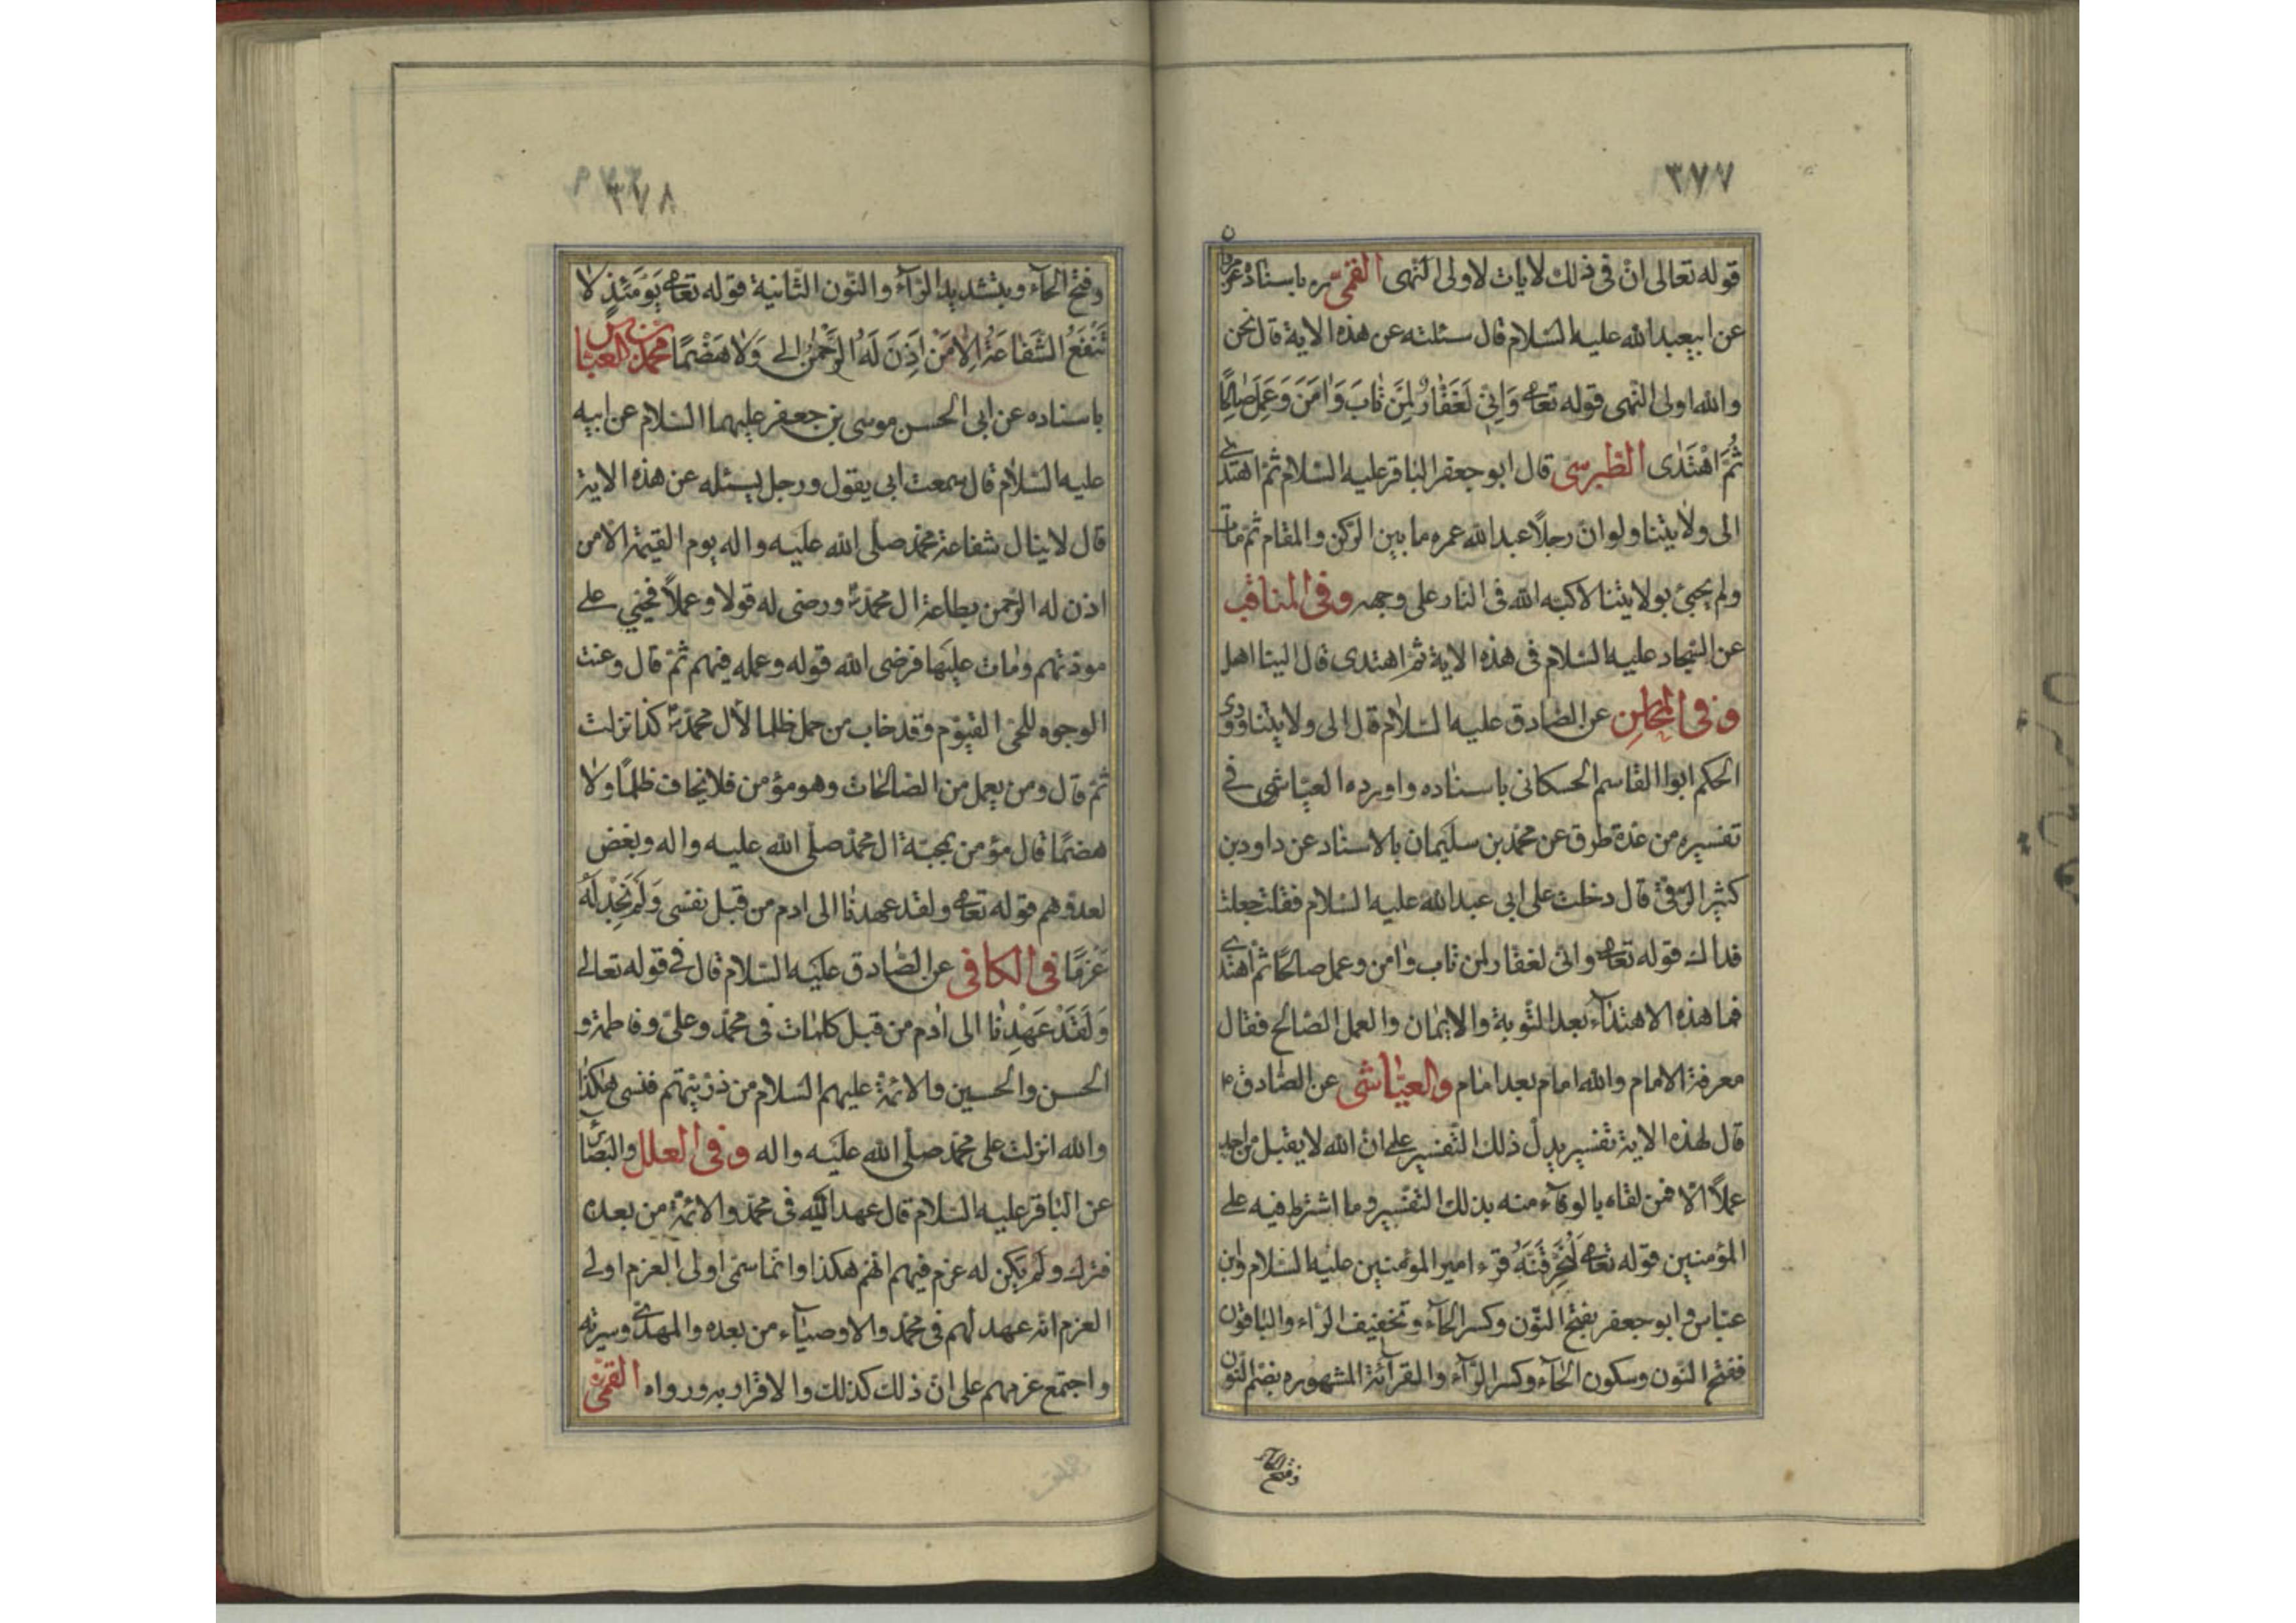 ٣٧٧
قوله تعالى ان فى ذلك لايات لاولى النهى القمى ره باسناده عن
عن ابيعبدالله عليه السلام قال سئلته عن هذه الاية قال نحن
والله اولى النهى قوله تعا وَاِنّى لَغَفّارٌ لِمَن تٰابَ وَاٰمَنَ وَعَمِلَ صٰالِحًا
ثُمَّ اهْتَدٰى الطبرسى قال ابو جعفر الباقر عليه السلام ثم اهتدى
الى ولايتنا ولو ان رجلاً عبد الله عمره ما بين الركن والمقام ثم مات
ولم يجئ بولايتنا لاكبه الله فى النار على وجهه وفى المناقب
عن السجاد عليه السلام فى هذه الاية ثم اهتدى قال الينا اهل
وفى المحاسن عن الصادق عليه السلام قال الى ولايتنا وروى
الحكم ابوا القاسم الحسكانى باسناده واورده العياشى فى
تفسيره من عدة طرق عن محمد بن سليمان بالاسناد عن داود بن
كثير الرقى قال دخلت على ابى عبدالله عليه السلام فقلت جعلت
فداك قوله تعا وانى لغفار لمن تاب وامن وعمل صالحًا ثم اهتدى
فما هذه الاهتداء بعد التوبة والايمان والعمل الصالح فقال
معرفة الامام والله امام بعد امام والعياشى عن الصادق ع
قال لهذه الاية تفسير يدل ذلك التفسير على ان الله لا يقبل من احد
عملاً الا فمن لقاه بالوفاء منه بذلك التفسير وما اشترط فيه على
المؤمنين قوله تعا لَنُحَرِّقَنَّهُ قرء امير المؤمنين عليه السلام وابن
عباس وابو جعفر بفتح النون وكسر الحاء وتخفيف الراء والباقون
ففتح النون وسكون الحاء وكسر الراء والقرائة المشهوره بضم النون
وفتح الحاء
٣٧٨
وفتح الحاء وبتشديد الراء والنون الثانية قوله تعا يَوْمَئِذٍ لا
تَنْفَعُ الشَّفاعَةُ اِلاّ مَنْ اَذِنَ لَهُ الرَّحْمٰنُ الى وَلا هَضْمًا محمد بن العباس
باسناده عن ابى الحسن موسى بن جعفر عليهما السلام عن ابيه
عليه السلام قال سمعت ابى يقول ورجل يسئله عن هذه الاية
قال لا ينال شفاعة محمد صلى الله عليه واله يوم القيمة الا من
اذن له الرحمن بطاعة ال محمد ورضى له قولا وعملاً فحيى على
مودتهم ومات عليها فرضى الله قوله وعمله فيهم ثم قال وعنت
الوجوه للحى القيوم وقد خاب من حمل ظلما لأل محمد كذا نزلت
ثم قال ومن يعمل من الصالحات وهو مؤمن فلا يخاف ظلمًا ولا
هضمًا قال مؤمن بمحبة ال محمد صلى الله عليه واله وبغض
لعدوهم قوله تعا ولقد عهدنا الى ادم من قبل نفسى وَلَمْ نَجِدْ لَهُ
عَزْمًا فى الكافى عن الصادق عليه السلام قال فى قوله تعالى
وَلَقَدْ عَهِدْنا الى ادم من قبل كلمات فى محمد وعلى وفاطمة و
الحسن والحسين والائمة عليهم السلام من ذريتهم فنسى هكذا
والله انزلت على محمد صلى الله عليه واله وفى العلل والبصائر
عن الباقر عليه السلام قال عهد اليه فى محمد والائمة من بعده
فترك ولم يكن له عزم فيهم انهم هكذا وانما سمى اولى العزم اولى
العزم انه عهد لهم فى محمد والاوصياء من بعده والمهدى وسيرته
واجتمع عزمهم على ان ذلك كذلك والاقرار به ورواه القمى